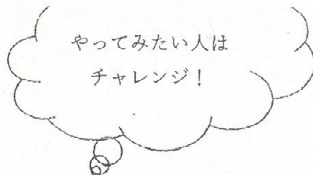 やってみたい人は
チャレンジ！